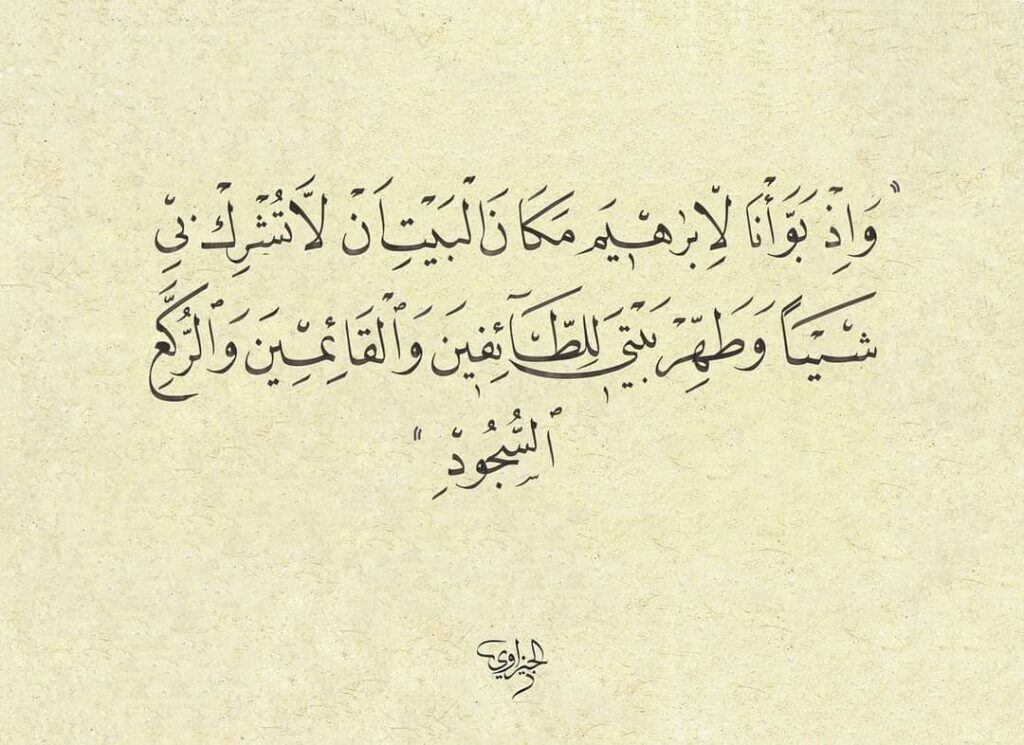 " وَإِذْ بَوَّأْنَا لِإِبْرَٰهِيمَ مَكَانَ الْبَيْتِ أَنْ لَّا تُشْرِكْ بِي
شَيْئًا وَطَهِّرْ بَيْتِيَ لِلطَّآئِفِينَ وَٱلْقَائِمِينَ وَٱلرُّكَّعِ
ٱلسُّجُودِ "
الجيزاوي